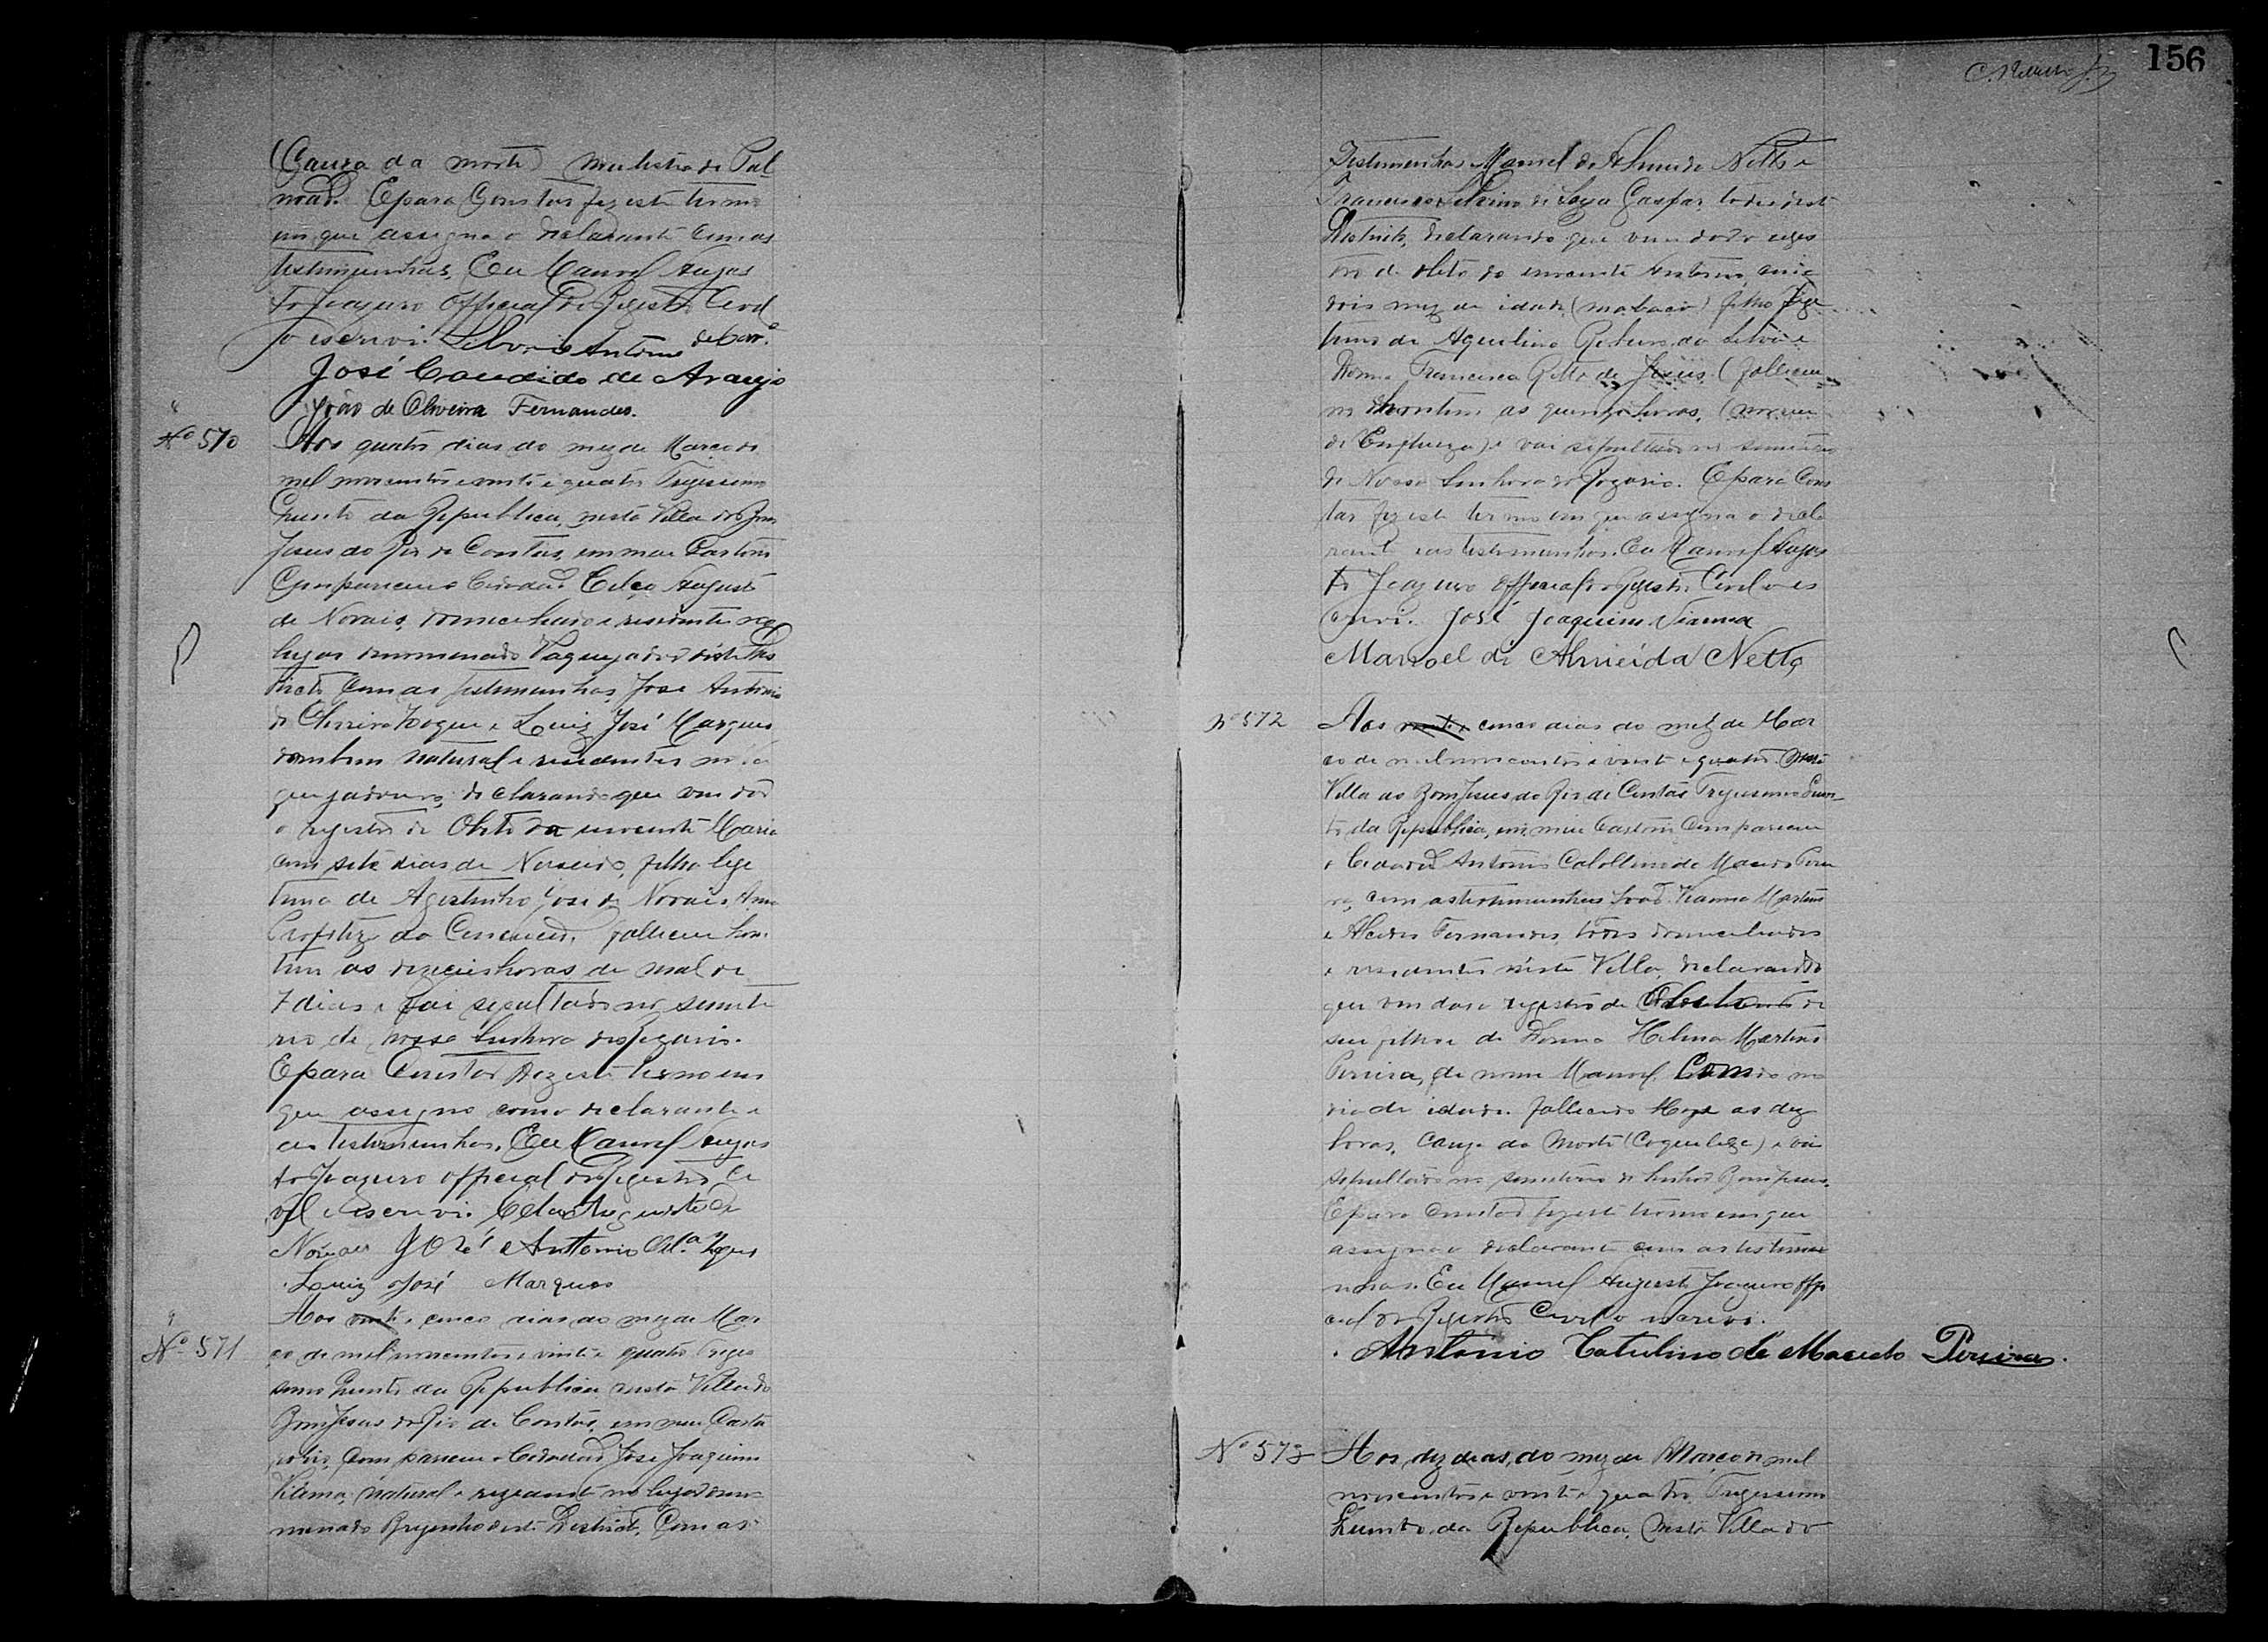 (Cauza da morte) mulestia de Pul
mão. E para Constar fiz este termo
em que assigna o declarante com as
testimunhas. Eu Manoel Augus
to Joazeiro Official do Registro Civil
o escrevi. Liborio Antonio de Car.º
José Candido de Araujo
João de Oliveira Fernandes.
Nº 570
Aos quatro dias do mez de Março de
mil novecentos e vinte e quatro Trigesimo
Quinto da Republica, nesta Villa do Bom
Jesus do Rio de Contas, em meu Cartorio
Compareceu o Cidadão Celço Augusto
de Novais, domiciliado e residente no
lugar denominado Vaquejador deste Dis
tricto com as testimunhas José Antonio
de Oliveira Roque e Luiz José Marques
tambem natural e residentes no Va
quejadouro, declarando que vem dar
o registro de Obito da inocente Maria
com sete dias de Nascido, filha lege
tima de Agostinho José de Novais e Anna
da Conceição, falleceu hon
tem as dezeceis horas de mal de
7 dias e foi sepultado no semite
rio de Nossa Senhora do Rozario.
E para Constar fiz este termo em
que assigno como declarante e
as testimunhas. Eu Manoel Augus
to Joazeiro official do Registro Ci
vil o escrevi. Celço Augusto de
Novaes José Antonio Olª Roque
Luiz José Marques
Nº 571
Aos vinte e cinco dias do mez de Mar
ço de mil novecentos e vinte e quatro Trige
simo Quinto da Republica nesta Villa do
Bom Jesus do Rio de Contas, em meu Carto
rio, compareceu o Cidadão José Joaquim
Vianna, natural e rezidente no lugar deno
minado Brejinho deste Districto, Com as
156
Testimunhas Manoel de Almeida Netto e
Francisco de Gaspar, todos deste
Districto, declarando que vem dar o regis
tro de obito do inocente Antonio, com
dois mez de idade, filho lige
timo de Aquilino da Silva e
Donna Francisca Ritta de Jesus. (falleceu
no hontem as quinze horas, (morreu
de ) e vai sepultado no semiterio
de Nossa Senhora do Rozario. E para Cons
tar fiz este termo em que assigna o decla
rante e as testimunhas. Eu Manoel Augus
to Joazeiro official do Registro Civil o es
crevi. José Joaquim Vianna
Manoel de Almeida Netto
Nº 572
Aos vinte e cinco dias do mez de Mar
ço de mil novecentos e vinte e quatro nesta
Villa do Bom Jesus do Rio de Contas Trigesimo Quin-
to da Republica, em meu Cartorio Compareceu
o Cidadão Antonio Catullino de Macedo Perei
ra, com as testimunhas João Vianna Martins
e Alcides Fernandes, todos domiciliados
e residentes nesta Villa, declarando
que vem dar o registro de Obito de
seu filho e de Donna Helena Martins
Pereira, de nome Manoel, Com
dia de idade. Fallecido Hoje as dez
horas, cauza da morte (Coqueluxe) e vai
sepultado no semiterio do Senhor Bom Jesus.
E para Constar fiz este termo em que
assigna o declarante com as testimu
nhas. Eu Manoel Augusto Joazeiro offi
cial do Registro Civil o escrevi.
Antonio Catulino de Macedo Pereira.
Nº 573
Aos dez dias do mez de Março de mil
novecentos e vinte e quatro, Trigesimo
Quinto da Republica, nesta Villa do